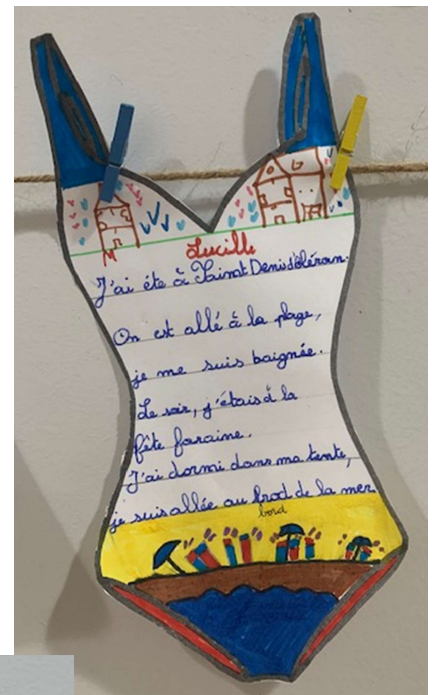 Lucille
J'ai éte à Sainat Denis d'oléron.
On est allé à la plage,
je me suis baignée.
Le soir, j'étais à la
fête foraine.
J'ai dormi dans ma tente,
je suis allée au brod de la mer
bord